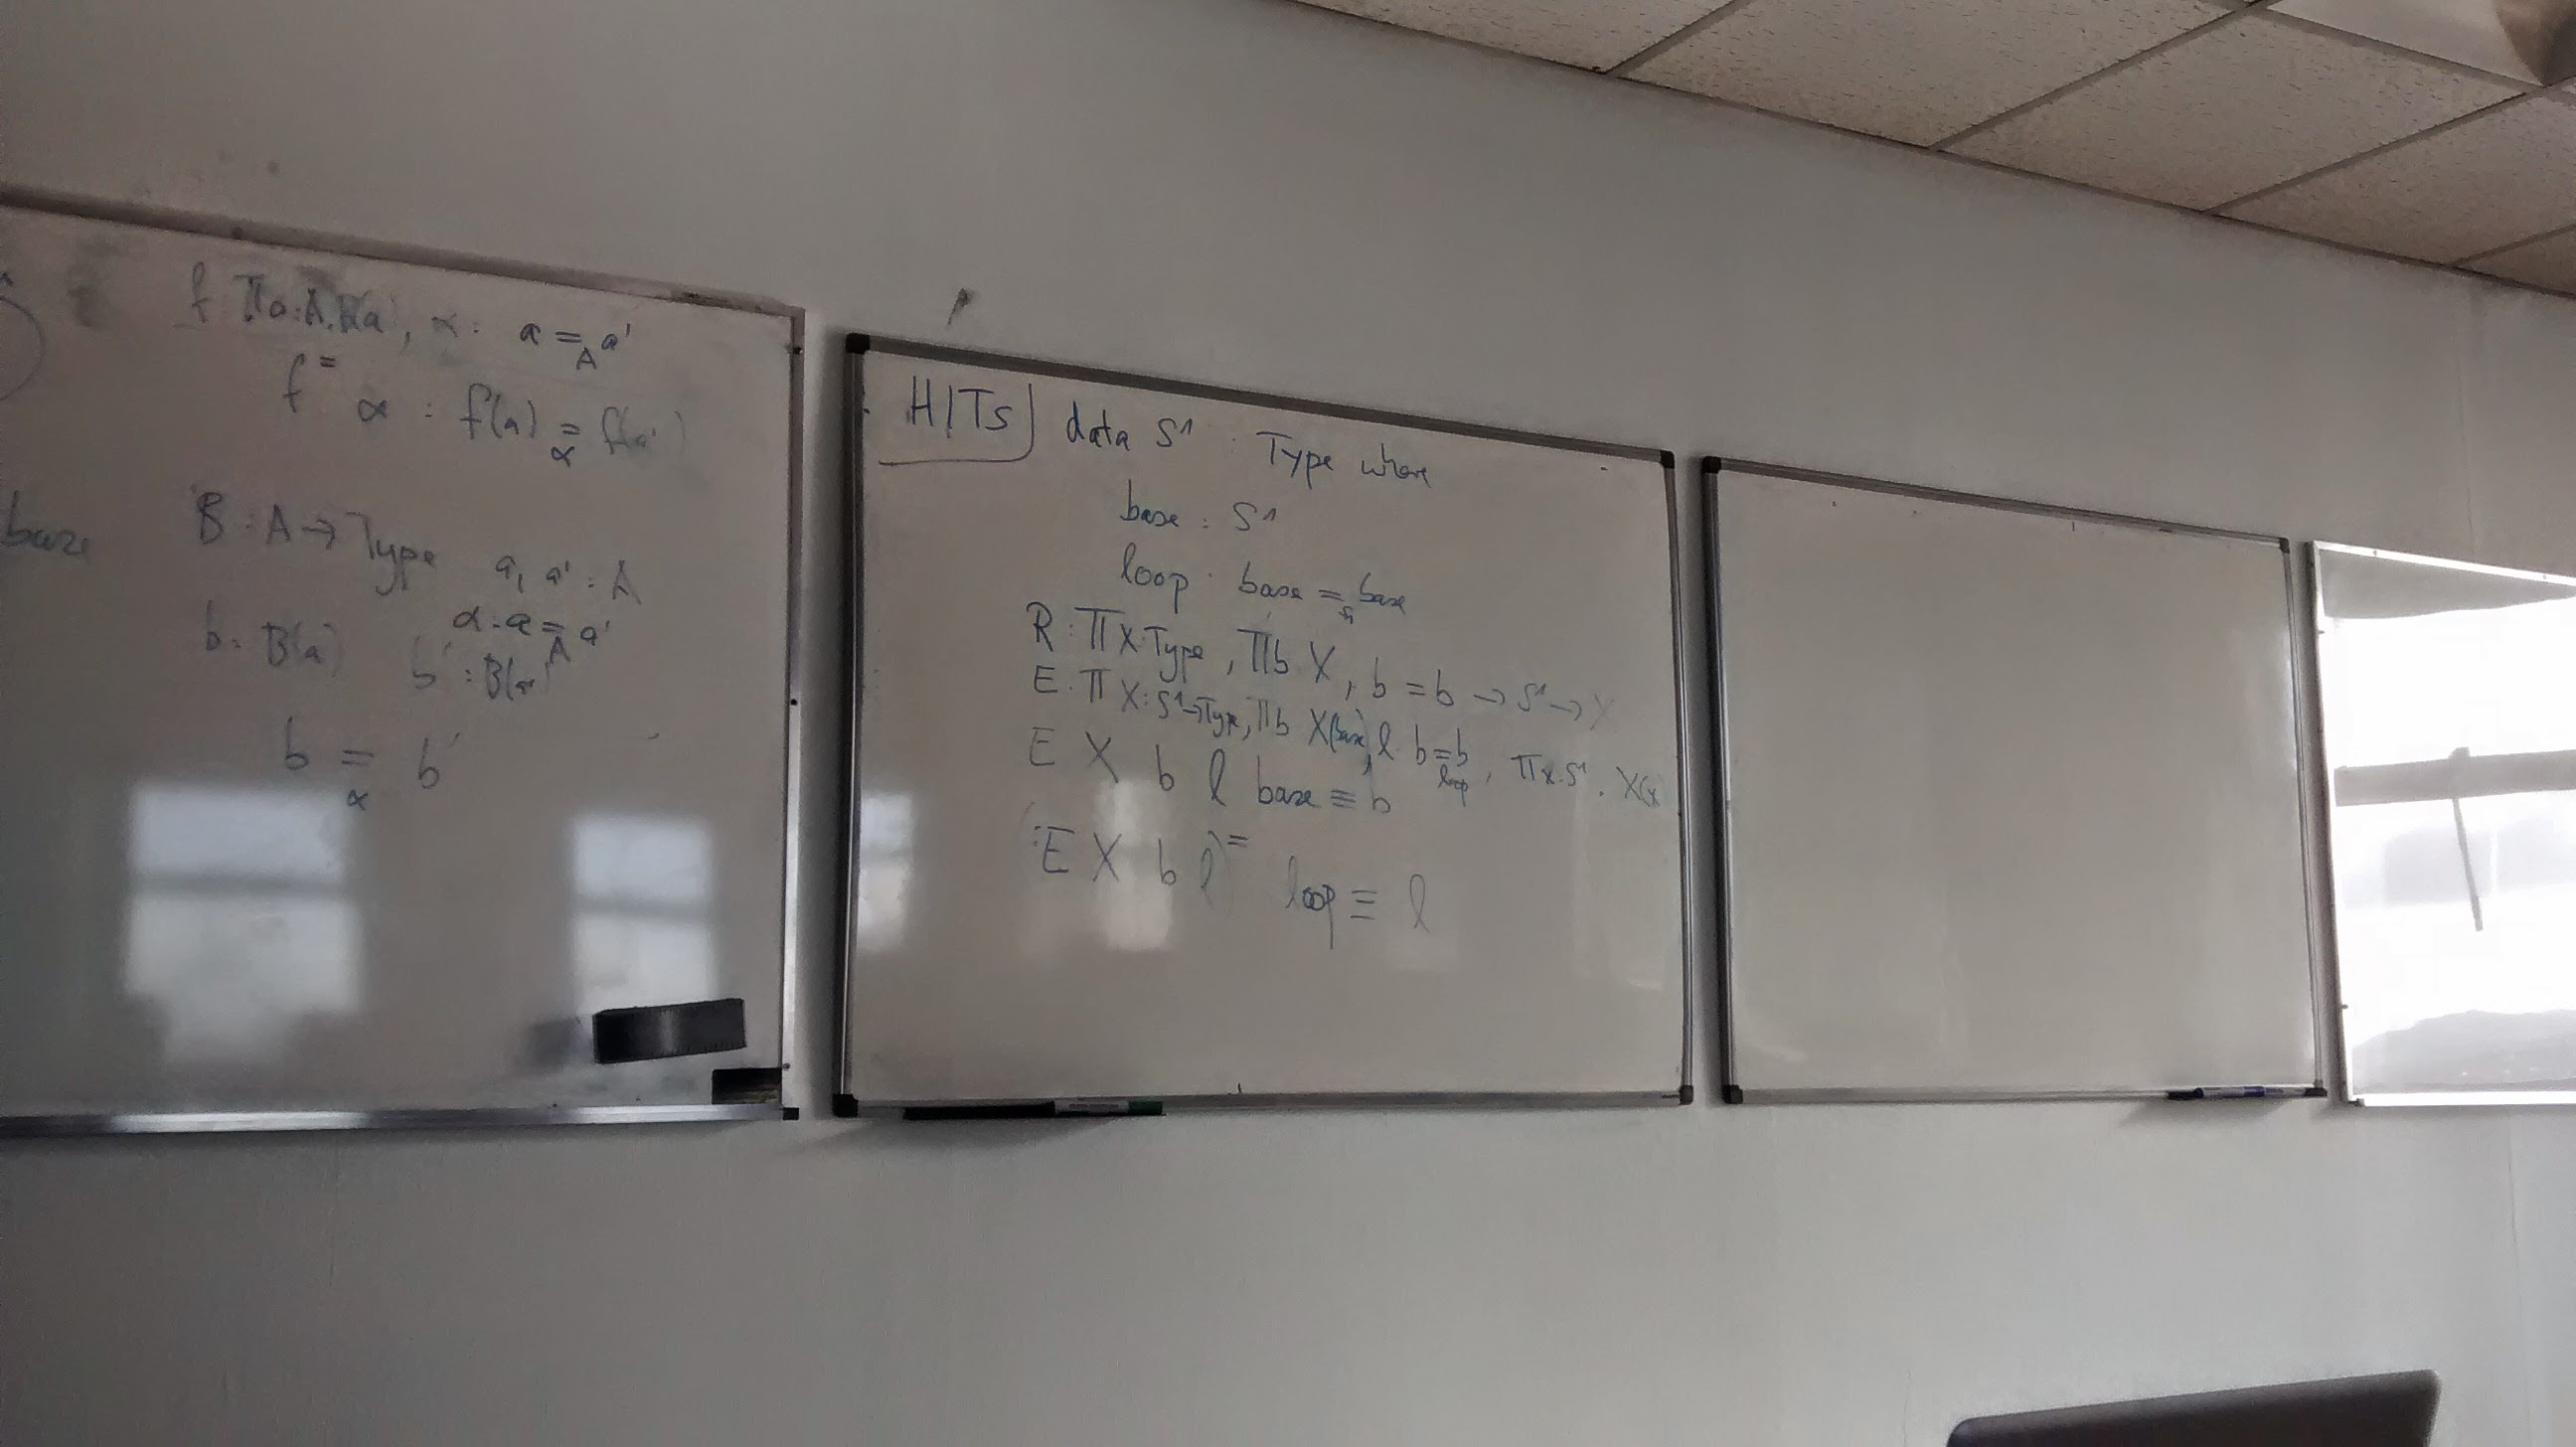 f Πa:A.B(a), α : a =_A a'
f^= α : f(a) =_α f(a')
base
B : A → Type a, a' : A
α : a =_A a'
b : B(a) b' : B(a')
b =_α b'
HITs data S¹ : Type where
base : S¹
loop : base =_S¹ base
R : ΠX:Type, Πb X, b = b → S¹ → X
E : ΠX : S¹→Type, Πb X(base), l : b =_loop b, Πx:S¹. X(x)
E X b l base ≡ b
(E X b l)^= loop ≡ l